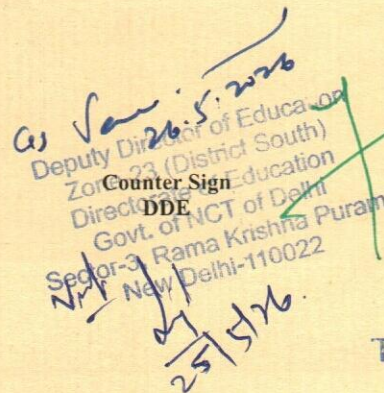 26.5.2026
Deputy Director of Education
Zone-23 (District South)
Counter Sign
Directorate of Education
DDE
Govt. of NCT of Delhi
Sector-3, Rama Krishna Puram
New Delhi-110022
25/5/26.
T